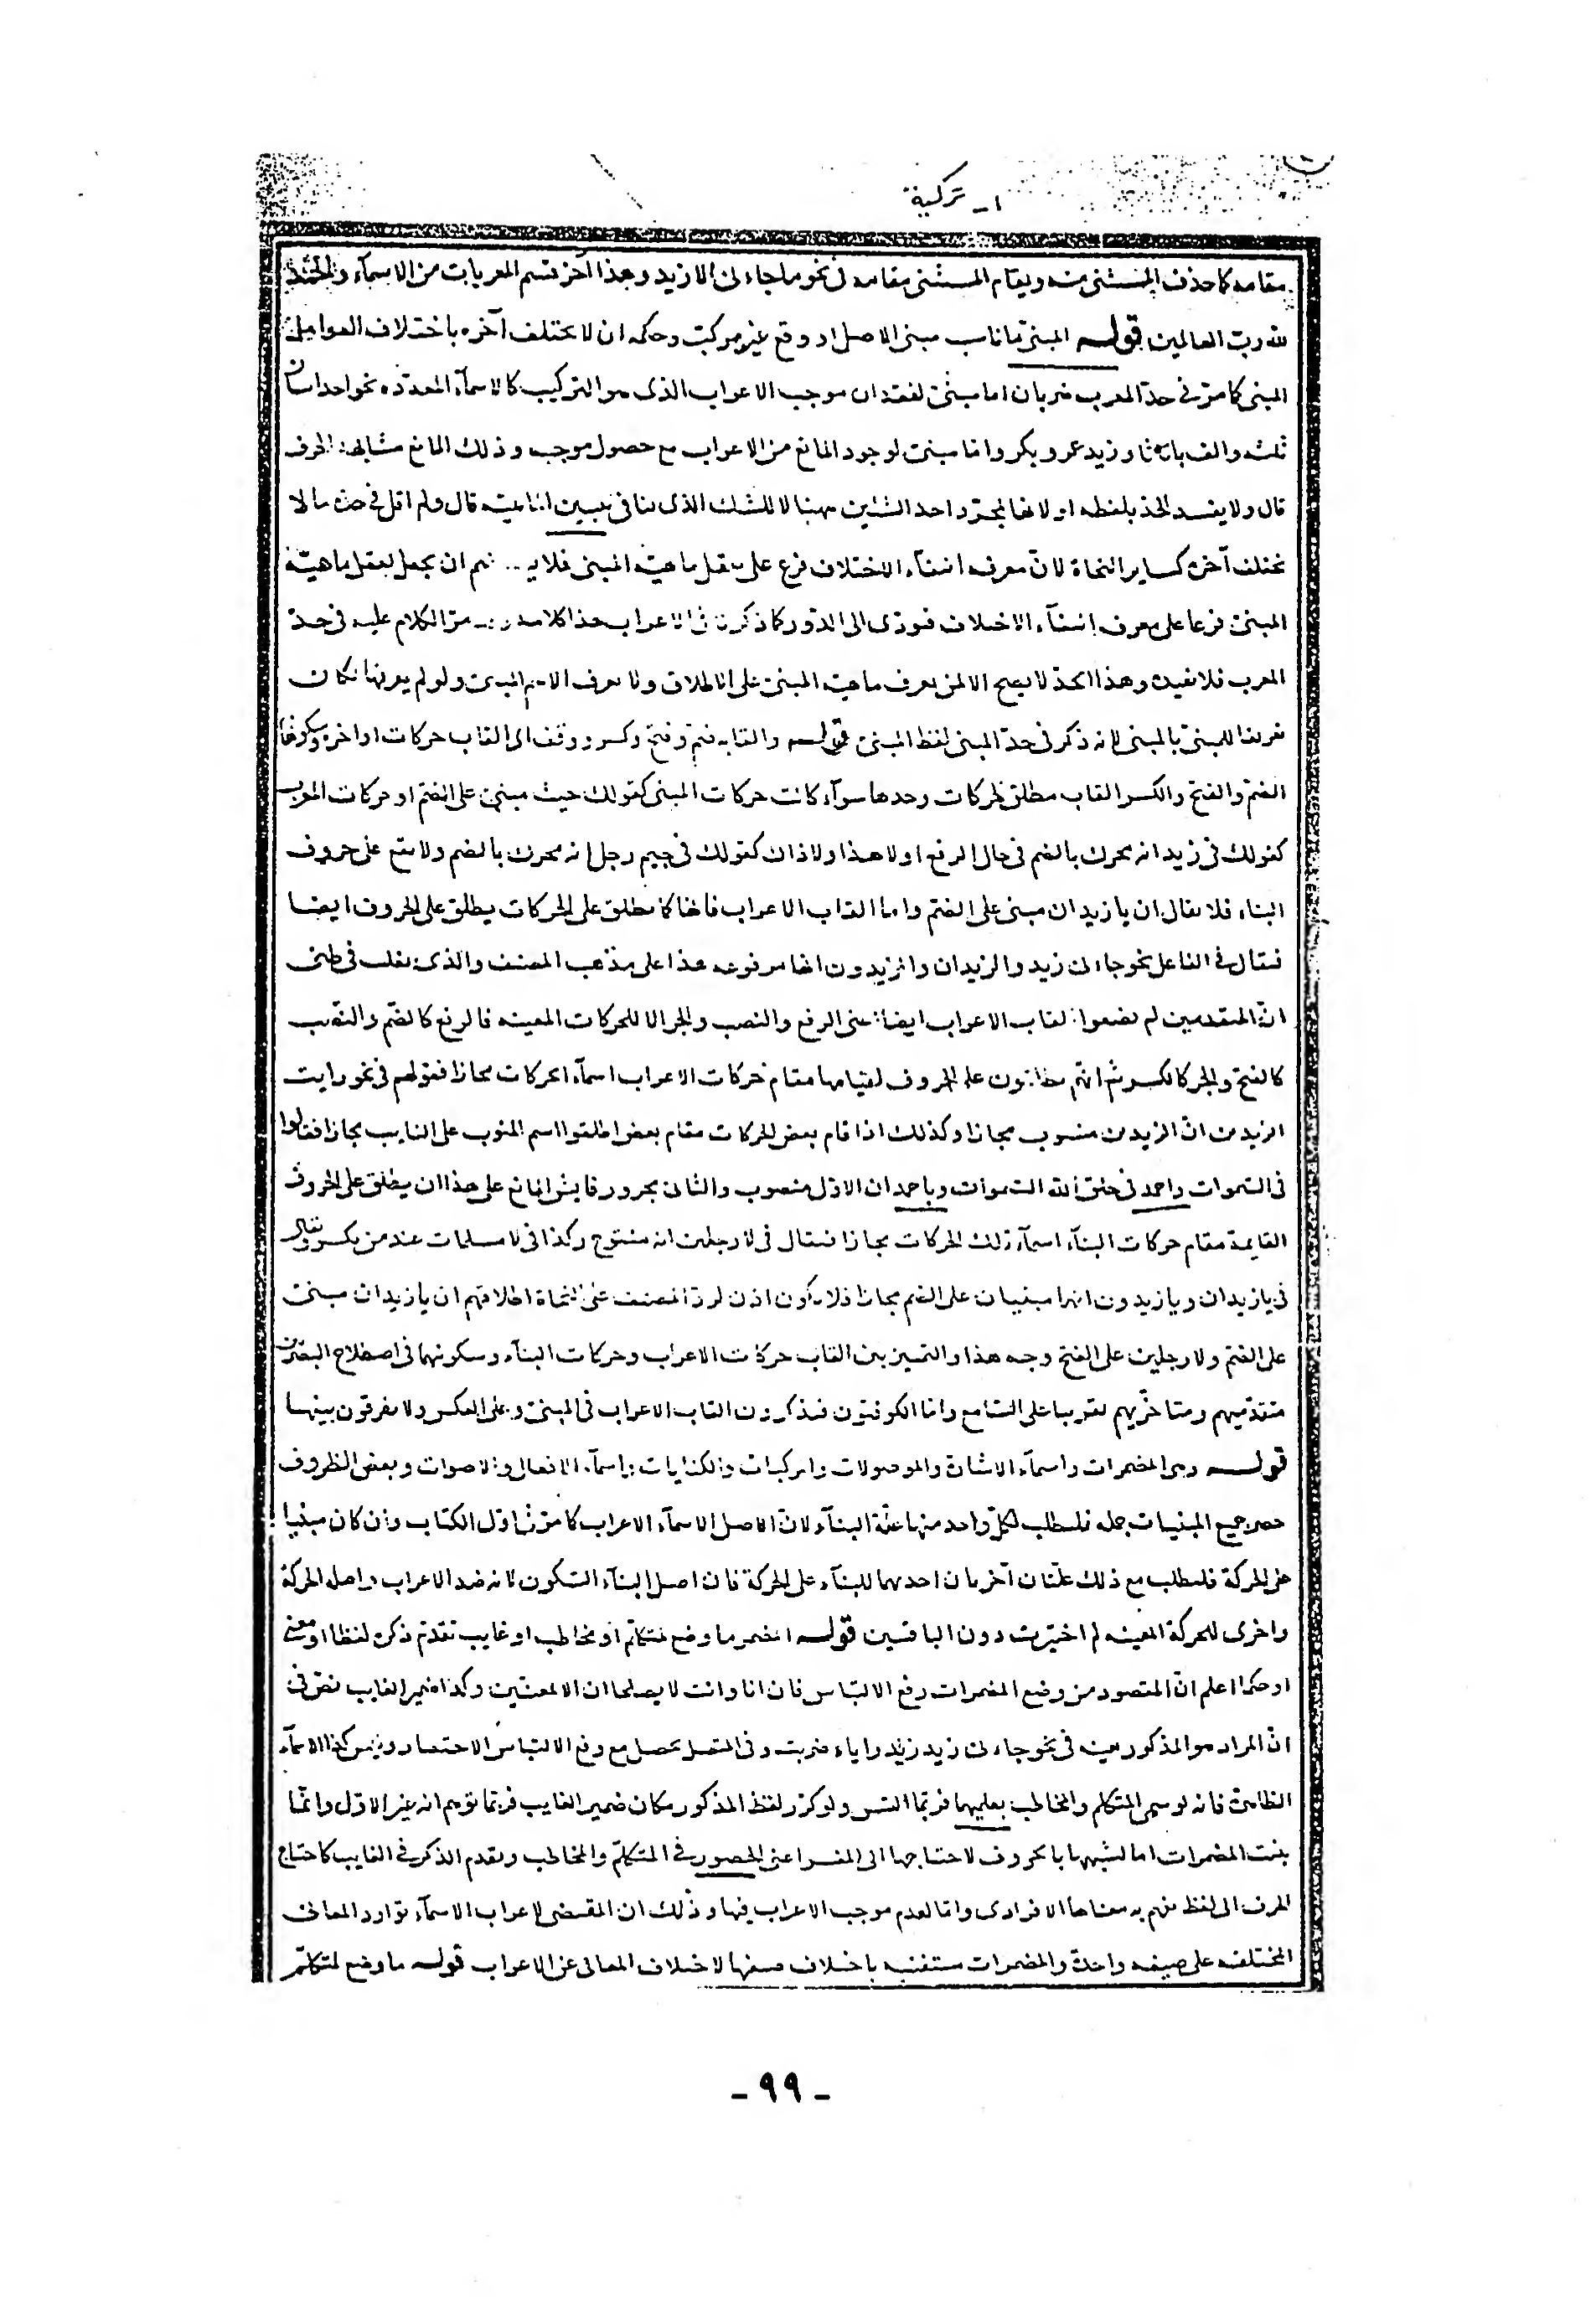 ١ـ تركية
مقامه كما حذف المستثنى منه ويقام المستثنى مقامه فى نحو ما جاءنى الا زيد وهذا آخر قسم المعربات من الاسماء والحمد
لله رب العالمين قوله المبنى ما ناسب مبنى الاصل او وقع غير مركب وحكمه ان لا يختلف آخره باختلاف العوامل
المبنى كما مر فى حد المعرب ضربان اما مبنى لفقدان موجب الاعراب الذى هو التركيب كالاسماء المعددة نحو واحد اثنان
ثلثه والف با تا ثا وزيد عمرو بكر واما مبنى لوجود المانع من الاعراب مع حصول موجبه وذلك المانع مشابهة الحرف
قال ولا يفسد الحد بلفظه او لانها لمجرد احد الشيئين ههنا لا للشك الذى ينافى تبيين الماهية قال ولم اقل فى حده ما لا
يختلف آخره كساير النحاة لان معرفة انتفاء الاختلاف فرع على تعقل ماهية المبنى فلا يستقيم ان يجعل تعقل ماهية
المبنى فرعا على معرفة انتفاء الاختلاف فيؤدى الى الدور كما ذكرنا فى الاعراب هذا كلامه وقد مر الكلام عليه فى حد
المعرب فلا نعيده وهذا الحد لا يصح الا لمن يعرف ماهية المبنى على الاطلاق ولا يعرف الاسم المبنى ولو لم يعرفها لكان
تعريفا للمبنى بالمبنى لانه ذكر فى حد المبنى لفظ المبنى قوله والقابه ضم وفتح وكسر ووقف اى القاب حركات اواخره وسكونها
الضم والفتح والكسر القاب مطلق الحركات وحدها سواء كانت حركات المبنى كقولك حيث مبنى على الضم او حركات المعرب
كقولك فى زيد انه محرك بالضم فى حال الرفع او لا هذا ولا ذاك كقولك فى جيم رجل انه محرك بالضم ولا يقع على حروف
البناء فلا يقال ان يا زيدان مبنى على الضم واما القاب الاعراب فانها كما تطلق على الحركات يطلق على الحروف ايضا
فيقال فى الفاعل نحو جاءنى زيد والزيدان والزيدون انها مرفوعه هذا على مذهب المصنف والذى يغلب فى ظنى
ان المتقدمين لم يضعوا القاب الاعراب ايضا اعنى الرفع والنصب والجر الا للحركات المعينه فالرفع كالضم والنصب
كالفتح والجر كالكسر ثم انهم يطلقون على الحروف لقيامها مقام حركات الاعراب اسماء الحركات مجازا فقولهم فى نحو رايت
الزيدين ان الزيدين منصوب مجازا وكذلك اذا قام بعض الحركات مقام بعض اطلقوا اسم المنوب على النايب مجازا فقالوا
فى السموات واحمد فى خلق الله السموات وباحمد ان الاول منصوب والثانى مجرور فايش المانع على هذا ان يطلق على الحروف
القايمة مقام حركات البناء اسماء تلك الحركات مجازا فيقال فى لا رجلين انه مفتوح وكذا فى لا مسلمات عند من يكسر ويقال
فى يا زيدان ويا زيدون انهما مبنيان على الضم مجازا فلا يكون اذن لرد المصنف على النحاة اطلاقهم ان يا زيدان مبنى
على الضم ولا رجلين على الفتح وجه هذا والتمييز بين القاب حركات الاعراب وحركات البناء وسكونهما فى اصطلاح البصريين
متقدميهم ومتاخريهم تقريبا على السامع واما الكوفيون فيذكرون القاب الاعراب فى المبنى وعلى العكس ولا يفرقون بينهما
قوله وهى المضمرات واسماء الاشارة والموصولات والمركبات والكنايات واسماء الافعال والاصوات وبعض الظروف
حصر جميع المبنيات جمله فليطلب لكل واحد منها علة البناء لان الاصل الاسماء الاعراب كما مر فى اول الكتاب وان كان مبنيا
على الحركة فليطلب مع ذلك علتان اخريان احديهما للبناء على الحركة فان اصل البناء السكون لانه ضد الاعراب واصله الحركة
واخرى للحركة المعينه لم اختيرت دون الباقيتين قوله المضمر ما وضع لمتكلم او مخاطب او غايب تقدم ذكره لفظا او معنى
او حكما اعلم ان المقصود من وضع المضمرات رفع الالتباس فان انا وانت لا يصلحان الا لمعينين وكذا ضمير الغايب نص فى
ان المراد هو المذكور بعينه فى نحو جاءنى زيد واياه ضربت وفى المتصل يحصل مع رفع الالتباس الاختصار وليس كذا الاسماء
الظاهرة فانه لو سمى المتكلم والمخاطب بعلميهما فربما التبس ولو كرر لفظ المذكور مكان ضمير الغايب فربما توهم انه غير الاول وانما
بنيت المضمرات اما لشبهها بالحروف لاحتياجها الى المفسر اعنى الحضور فى المتكلم والمخاطب وتقدم الذكر فى الغايب كاحتياج
الحرف الى لفظ يفهم به معناها الافرادى واما لعدم موجب الاعراب فيها وذلك ان المقتضى لاعراب الاسماء توارد المعانى
المختلفه على صيغه واحدة والمضمرات مستغنيه باختلاف صيغها لاختلاف المعانى عن الاعراب قوله ما وضع لمتكلم
- ٩٩ -